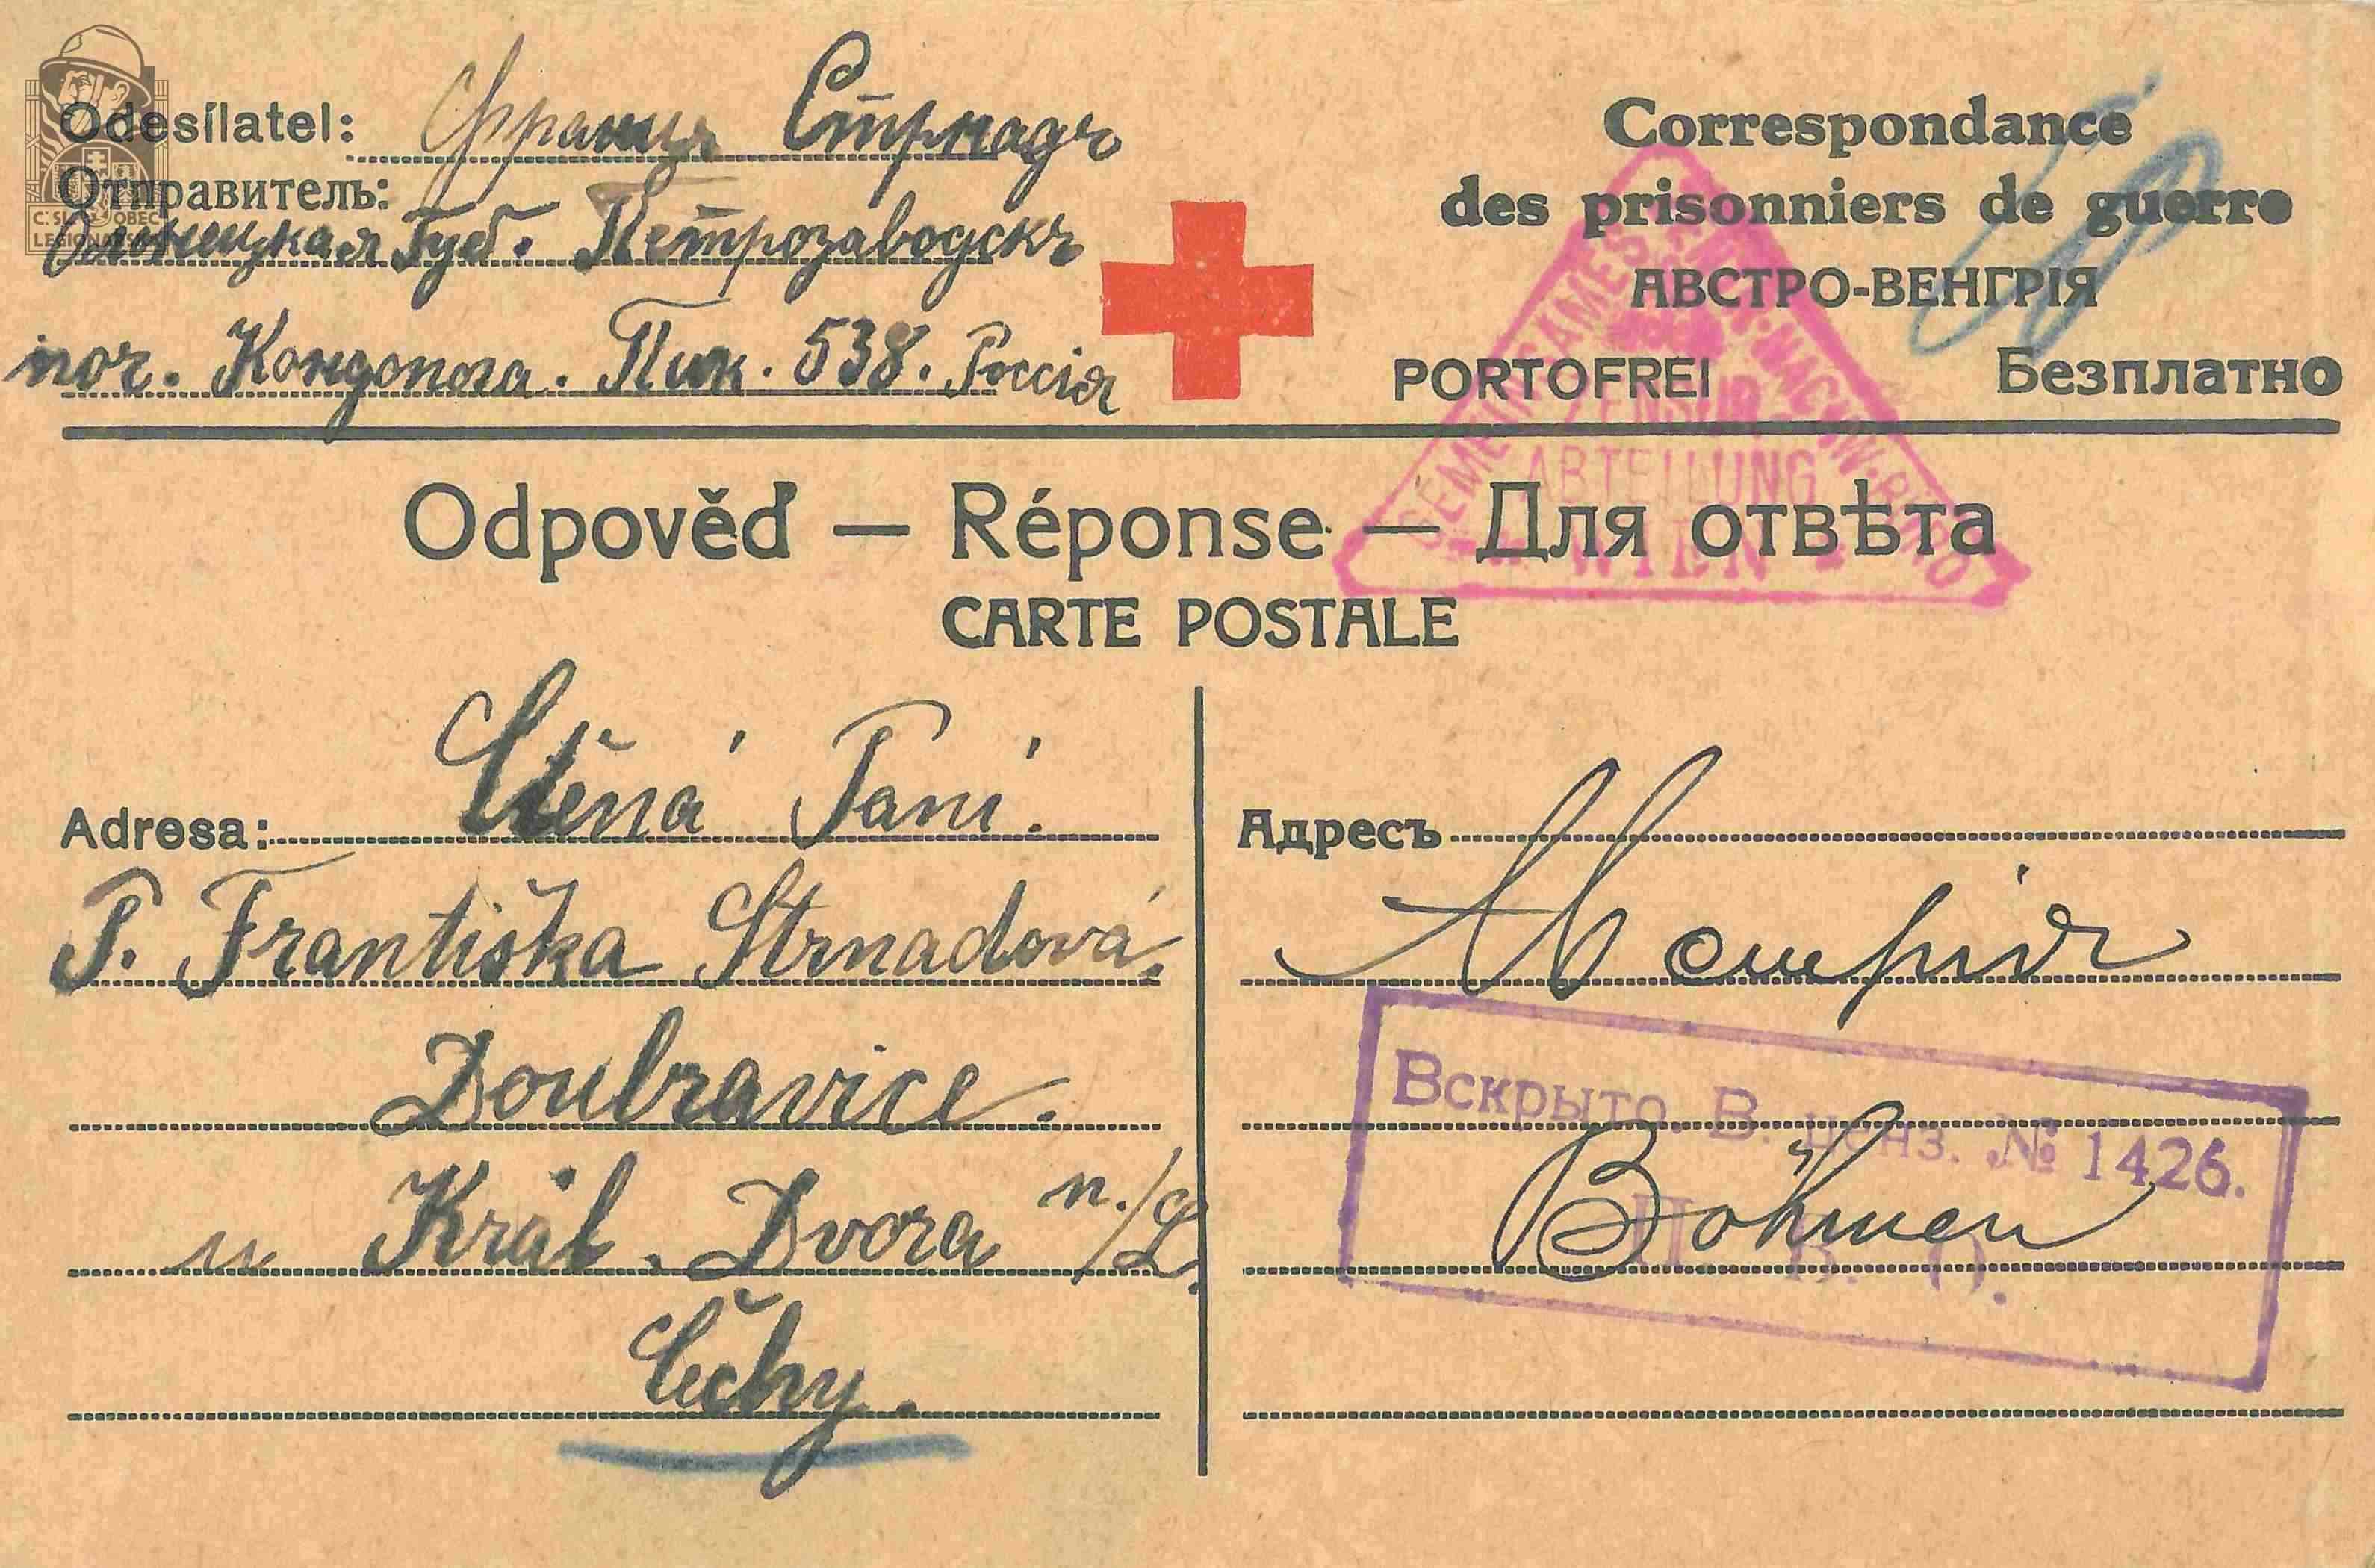 Odesílatel: Францъ Стрнадъ
Отправитель:
Олонецкая Губ. Петрозаводскъ
поч. Кондопога. Пик. 538. Россія
Correspondance
des prisonniers de guerre
АВСТРО-ВЕНГРІЯ
PORTOFREI Безплатно
Odpověď — Réponse — Для отвѣта
CARTE POSTALE
GEMEINSAMES ZENTRAL-NACHW.-BÜRO
ZENSUR
ABTEILUNG
WIEN
Ctěná Paní.
Adresa:
P. Františka Strnadová.
Doubravice.
u Král. Dvora n./L.
Čechy.
Адресъ
Австрія
Böhmen
Вскрыто. В. ценз. № 1426.
П. В. О.
Č:SL. OBEC
LEGIONÁŘSKÁ